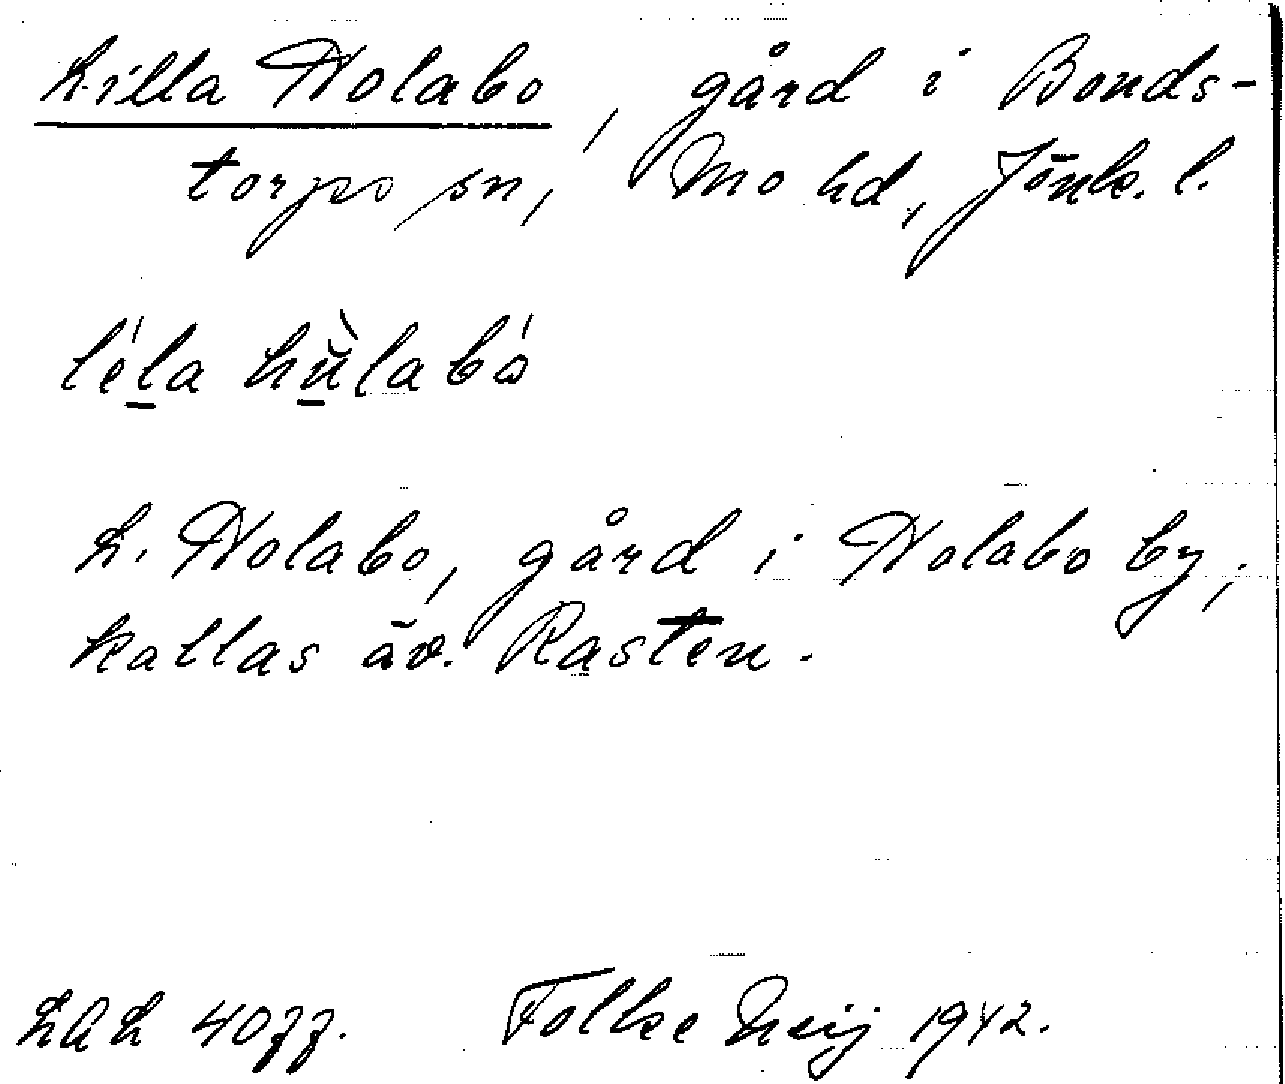 Lilla Holabo, gård i Bonds-
torps sn, Mo hd, Jönk. l.
léla hùlabó
L. Holabo, gård i Holabo by,
kallas äv. Rasten.
LAL 4077. Folke Neij 1942.